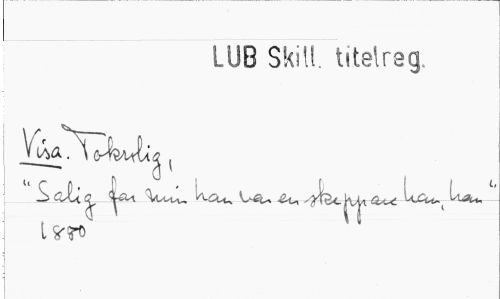 LUB Skill. titelreg.
Visa. Tokrolig,
"Salig far min han var en skeppare han, han"
1880